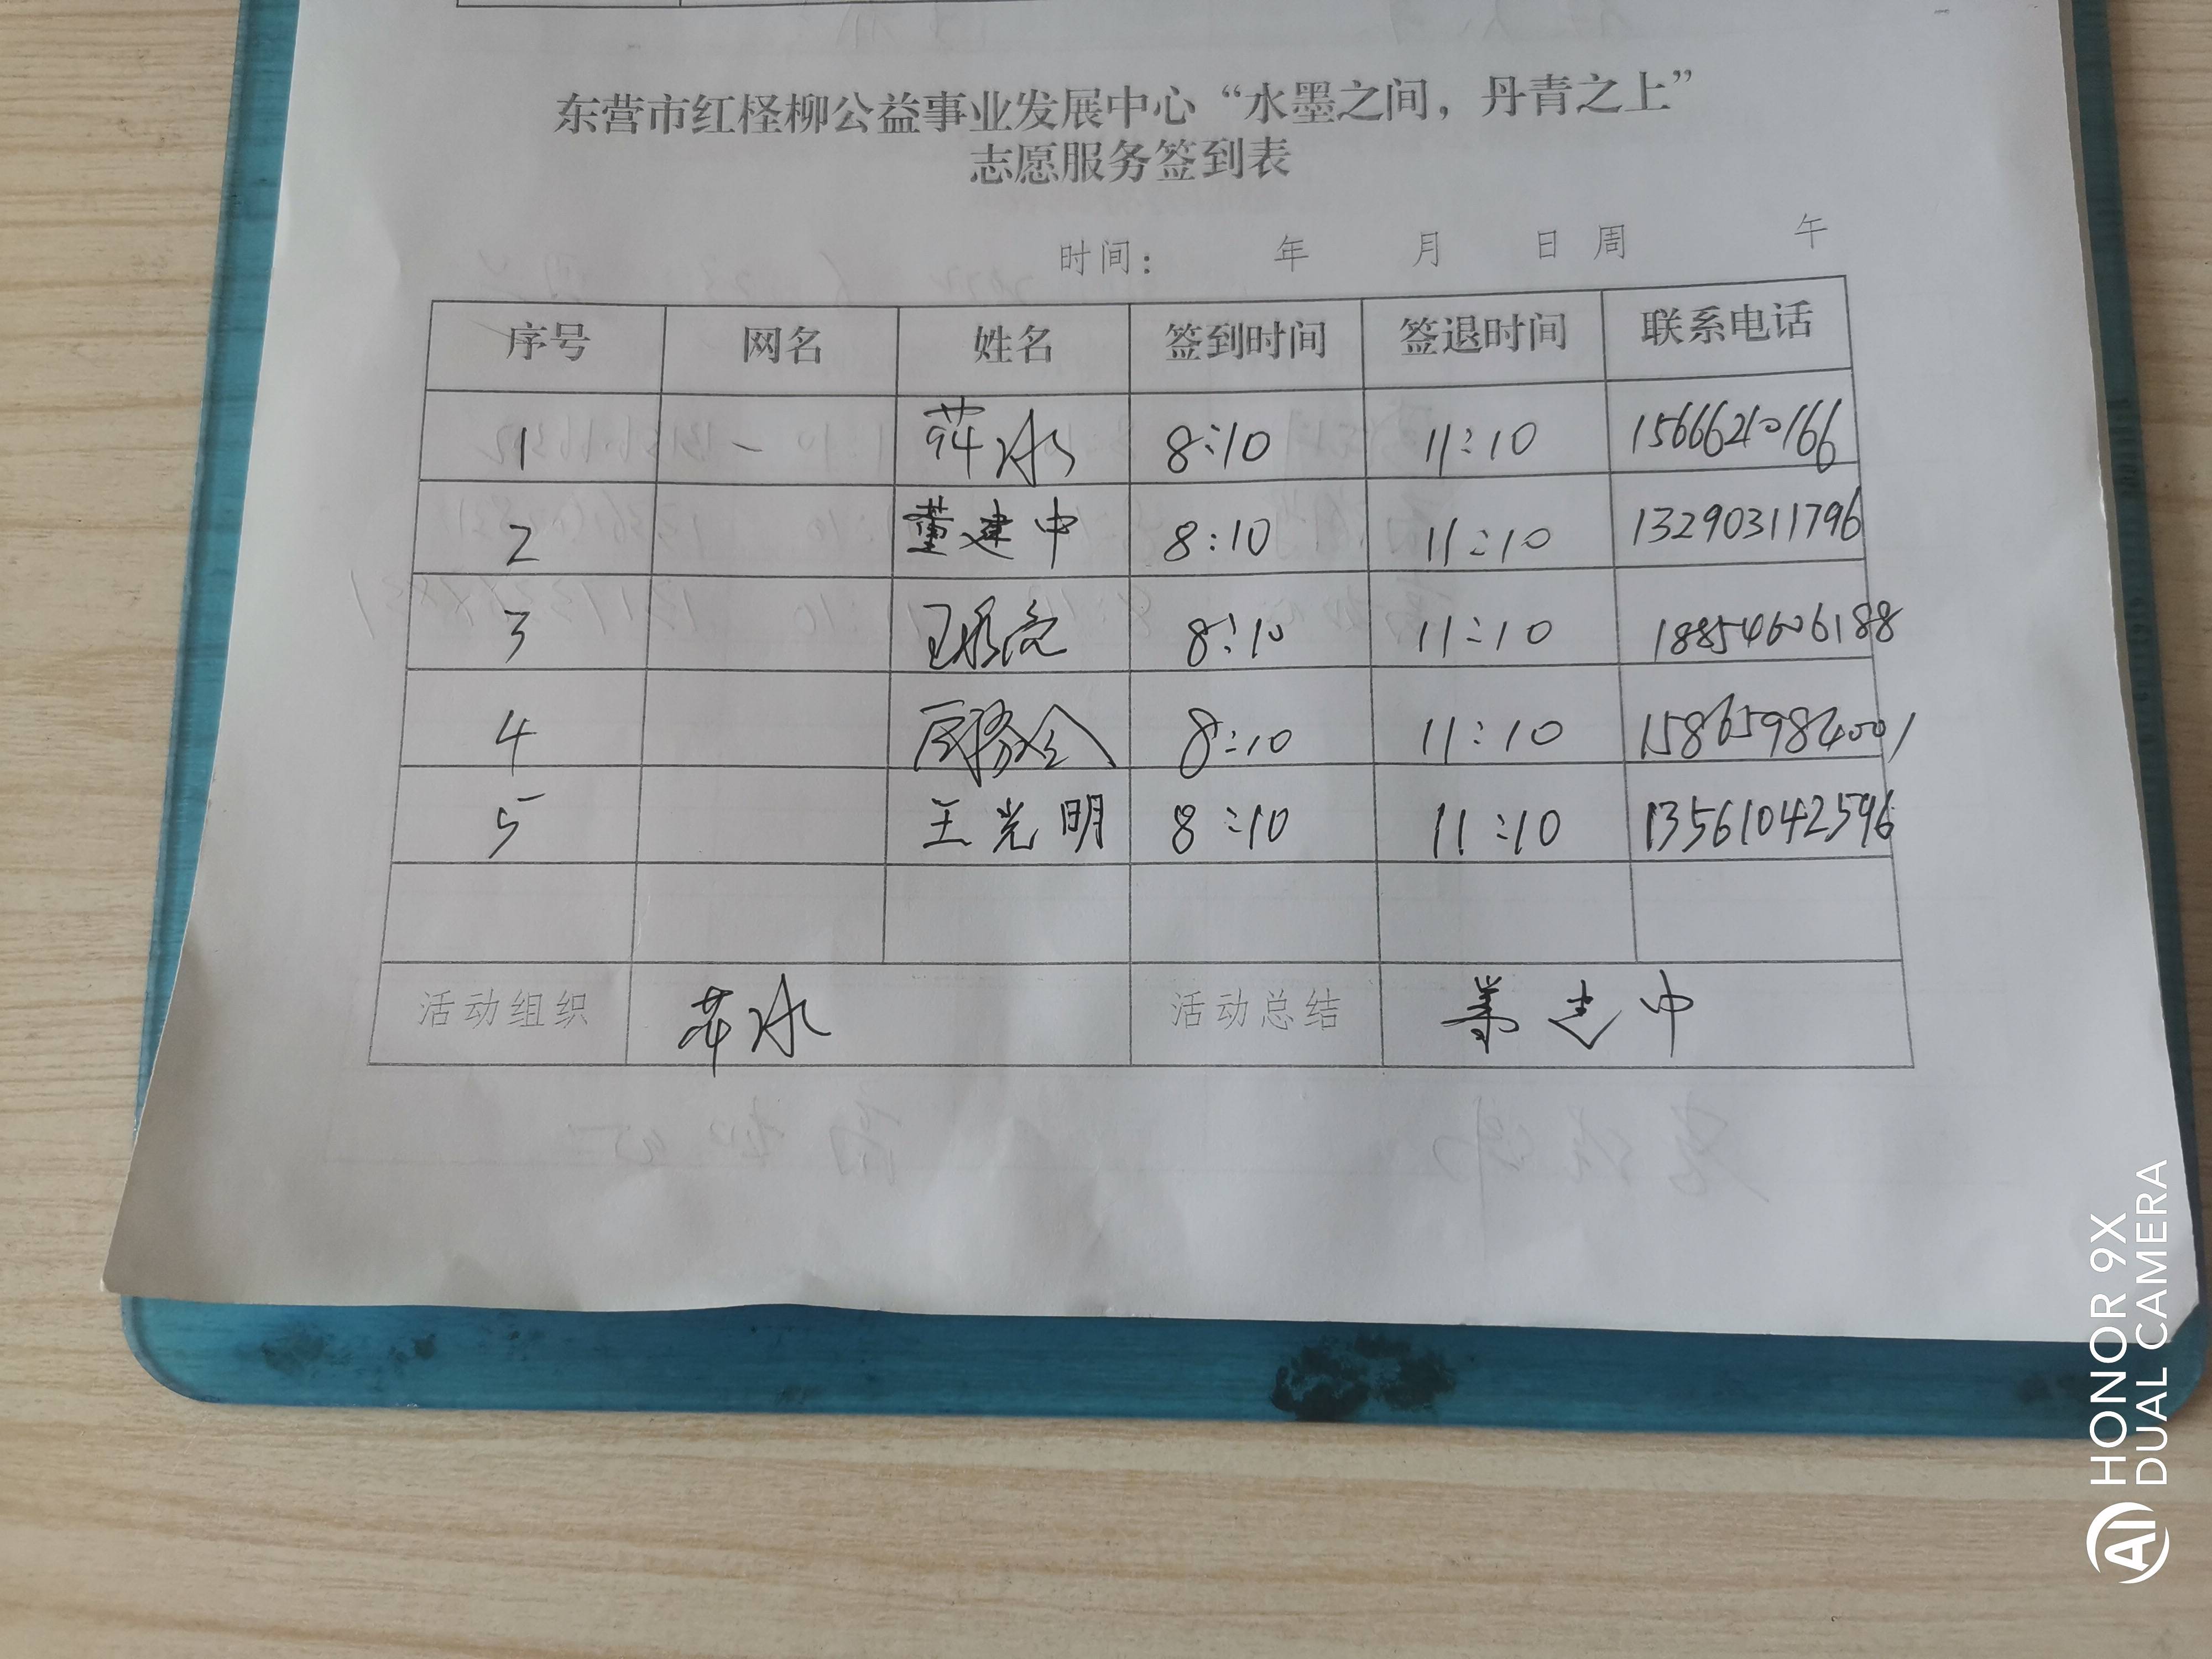 东营市红柽柳公益事业发展中心“水墨之间，丹青之上”
志愿服务签到表
时间： 年 月 日 周 午
序号 网名 姓名 签到时间 签退时间 联系电话
1 - 萍水 8:10 11:10 15666210166
2 董建中 8:10 11:10 13290311796
3 8:10 11:10 18854606188
4 8:10 11:10 15865984001
5 王光明 8:10 11:10 13561042596
活动组织 萍水 活动总结 董建中
HONOR 9X
AI DUAL CAMERA